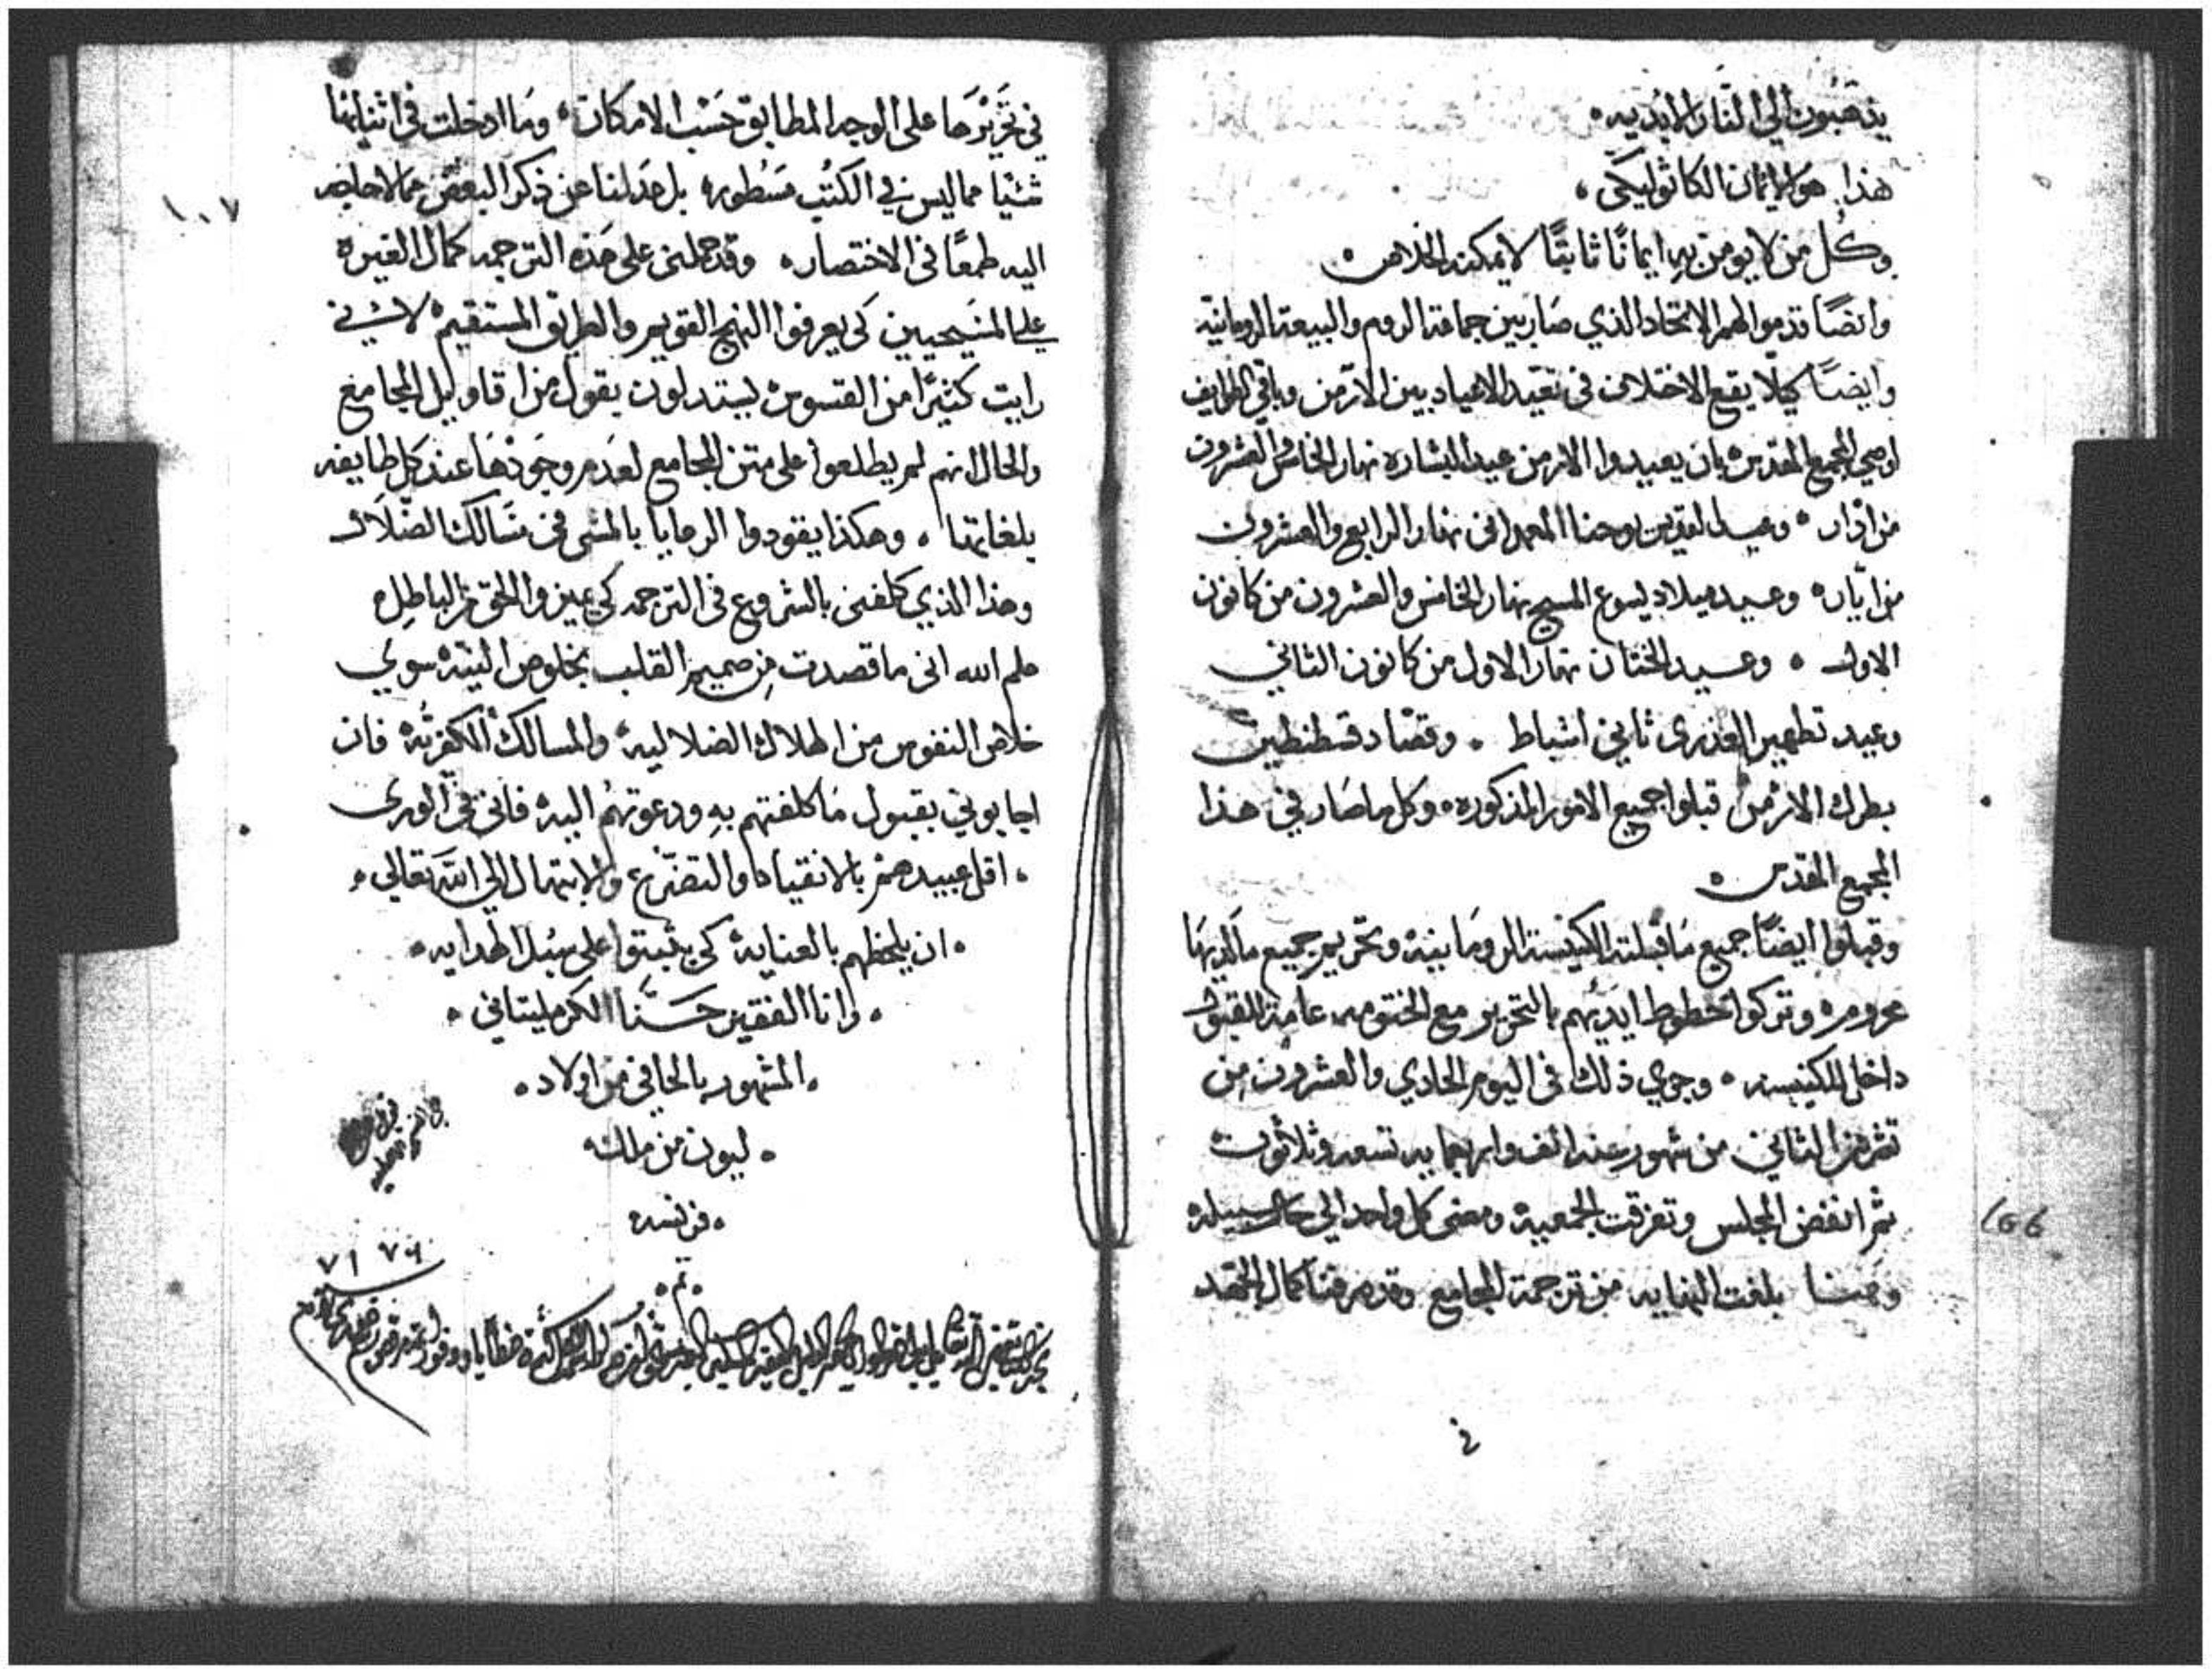 يذهبون الي النار الابديه
هذا هو الايمان الكاثوليكي
وكل من لا يومن به ايمانًا ثابتًا لا يمكنه الخلاص
وايضًا قدموا لهم الاتحاد الذي صار بين جماعة الروم والبيعة الرومانية
وايضًا كيلا يقع الاختلاف في تعييد الاعياد بين الارمن وباقي الطوايف
اوصي المجمع المقدس بان يعيدوا الارمن عيد البشاره نهار الخامس والعشرون
من اذار وعيد القديس يوحنا المعمدانى نهار الرابع والعشرون
من ايار وعيد ميلاد يسوع المسيح نهار الخامس والعشرون من كانون
الاول وعيد الختان نهار الاول من كانون الثاني
وعيد تطهير العذرى ثاني اشباط وقصاد قسطنطين
بطرك الارمن قبلوا جميع الامور المذكوره وكل ما صار في هذا
المجمع المقدس
وقبلوا ايضًا جميع ما قبلته الكنيسة الرومانية وتحريم جميع ما لديها
محرومه وتركوا خطوط ايديهم بالتحرير مع الختومه علامة القبول
داخل الكنيسه وجري ذلك فى اليوم الحادي والعشرون من
تشرين الثاني من شهور سنه الف واربعمايه تسعه وثلاثون
ثم انفض المجلس وتفرقت الجمعية ومضى كل واحد الي حال سبيله
وهنا بلغت النهايه من ترجمة المجامع وقد صرفنا كمال الجهد
166
في
١٠٧
في تحريرها على الوجه المطابق حسب الامكان وما ادخلت في اثنايها
شئيا مما ليس في الكتب مسطوره بل عدلنا عن ذكر البعض مما لا حاجه
اليه طمعًا فى الاختصار وقد حملنى على هذه الترجمه كمال الغيرة
على المسيحيين كى يعرفوا النهج القويم والطريق المستقيم لانني
رايت كثيرًا من القسوس يستدلون بقول من اقاويل المجامع
والحال انهم لم يطلعوا على متن المجامع لعدم وجودها عند كل طايفه
بلغاتها وهكذا يقودوا الرعايا بالمشى فى مسالك الضلال
وهذا الذي كلفنى بالشروع فى الترجمه كى يميزوا الحق من الباطل
علم الله انى ما قصدت من صميم القلب بخلوص النية سوي
خلاص النفوس من الهلاك الضلالية والمسالك الكفرية فان
اجابوني بقبول ما كلفتهم به ودعوتهم اليه فانى في الورى
اقل عبيدهم بالانقياد والتضرع والابتهال الي الله تعالي
ان يلحظهم بالعناية كى يثبتوا على سبل الهدايه
وانا الفقير حنا الكرمليتاني
المشهور بالحافي من اولاد
ليون من ملك
فرنسه
تم